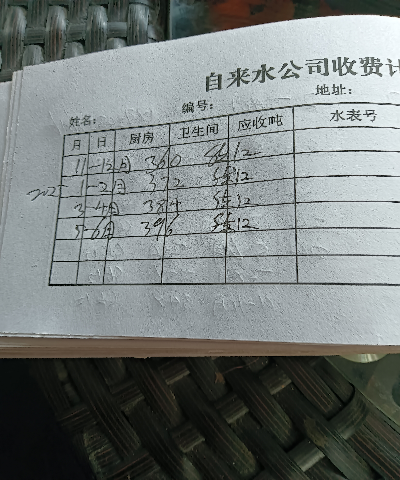 自来水公司收费计
姓名: 编号: 地址:
月 日 厨房 卫生间 应收吨 水表号
11-12月 360 12
1-2月 372 12
3-4月 384 12
5-6月 396 12